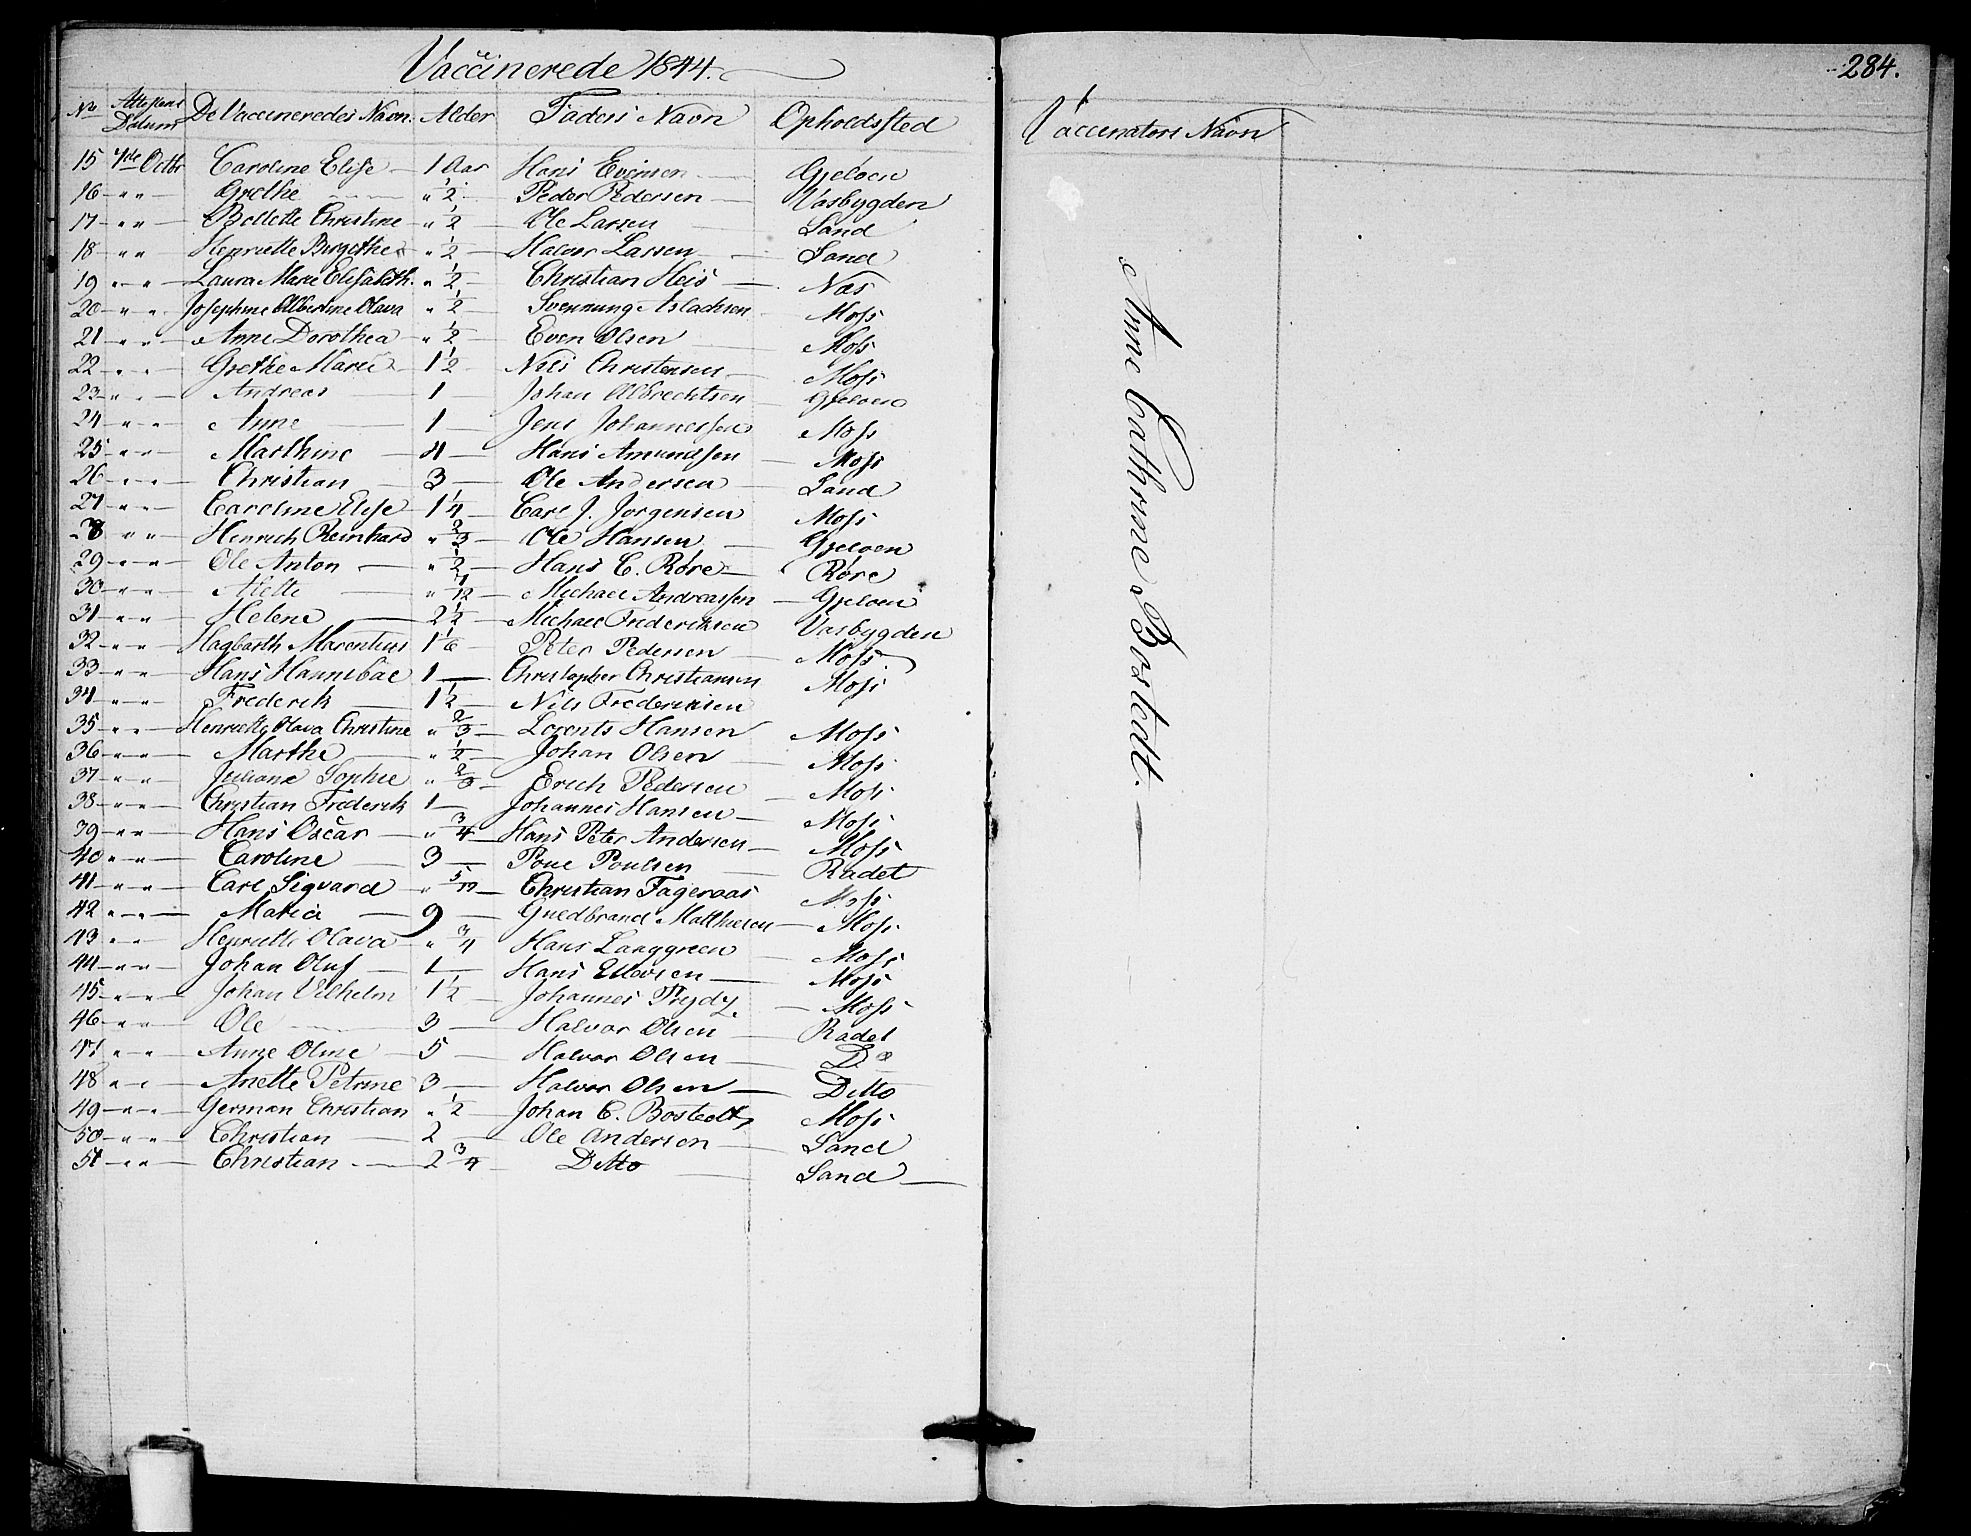 Vaccinerede 1844.
No Attestens Datum De Vaccineredes Navn. Alder Faders Navn Opholdssted
15 7de Octbr Caroline Elise 1 Aar Hans Evensen Gjeloen
16 " " Grethe " 1/2 Peder Pedersen Vasbygden
17 " " Bollette Christine " 1/2 Ole Larsen Sand
18 " " Henriette Birgethe " 1/2 Halvor Larsen Sand
19 " " Laura Marie Elisabeth. " 1/2 Christian Heis Næs
20 " " Josephine Albertine Olava " 1/2 Svennung Aslachsen Moss
21 " " Anne Dorothea " 1/2 Even Olsen Moss
22 " " Grethe Marie 1 1/2 Nils Christensen Moss
23 " " Andreas 1 Johan Albrechtsen Gjeloen
24 " " Anne 1 Jens Johannessen Moss
25 " " Marthine 4 Hans Amundsen Moss
26 " " Christian 3 Ole Andersen Sand
27 " " Caroline Elise 1 1/4 Carl J. Jorgensen Moss
28 " " Henrich Reinhard " 2/3 Ole Hansen Gjeloen
29 " " Ole Anton " 1/2 Hans C. Røre Røre
30 " " Mette " 7/12 Michael Andreassen Gjeloen
31 " " Helene 2 1/2 Michael Frederiksen Vasbygden
32 " " Hagbarth Marentius 1 1/6 Peter Pedersen Moss
33 " " Hans Hannibal 1 Christopher Christiansen Moss
34 " " Frederik 1 1/2 Nils Frederiksen
35 " " Henriette Olava Christine " 2/3 Lorents Hansen Moss
36 " " Marthe " 1/2 Johan Olsen Moss
37 " " Juliane Sophie " 2/3 Erich Pedersen Moss
38 " " Christian Frederik 1 Johannes Hansen Moss
39 " " Hans Oscar " 3/4 Hans Peter Andersen Moss
40 " " Caroline 3 Poul Poulsen Radet
41 " " Carl Sigvard " 5/12 Christian Fageraas Moss
42 " " Maria 9 Guedbrand Mathiesen Moss
43 " " Henriette Olava " 3/4 Hans Langgreen Moss
44 " " Johan Oluf 1 Hans Ellevsen Moss
45 " " Johan Vilhelm 1 1/2 Johannes Prydz Moss
46 " " Ole 3 Halvor Olsen Radet
47 " " Anne Oline 5 Halvor Olsen Do
48 " " Anette Petrine 3 Halvor Olsen Ditto
49 " " German Christian " 1/2 Johan C. Bostedt Moss
50 " " Christian 2 Ole Andersen Sand
51 " " Christian 2 3/4 Ditto Sand
284.
Vaccinators Navn
Anne Cathrine Bostedt.